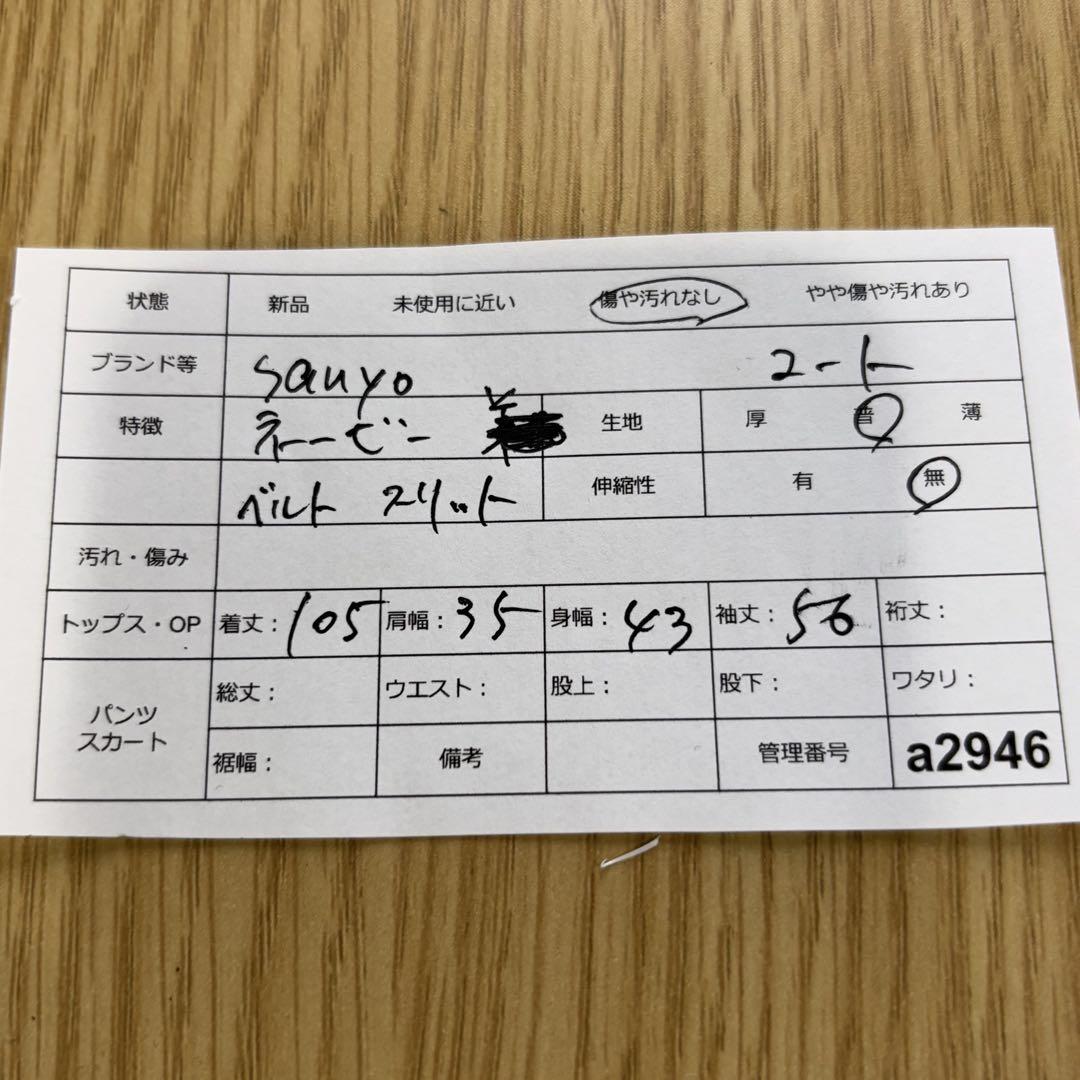 状態 新品 未使用に近い 傷や汚れなし やや傷や汚れあり
ブランド等 sanyo コート
特徴 ネービー 生地 厚 普 薄
ベルト スリット 伸縮性 有 無
汚れ・傷み
トップス・OP 着丈：105 肩幅：35 身幅：43 袖丈：56 裄丈：
パンツ スカート 総丈： ウエスト： 股上： 股下： ワタリ：
裾幅： 備考 管理番号 a2946